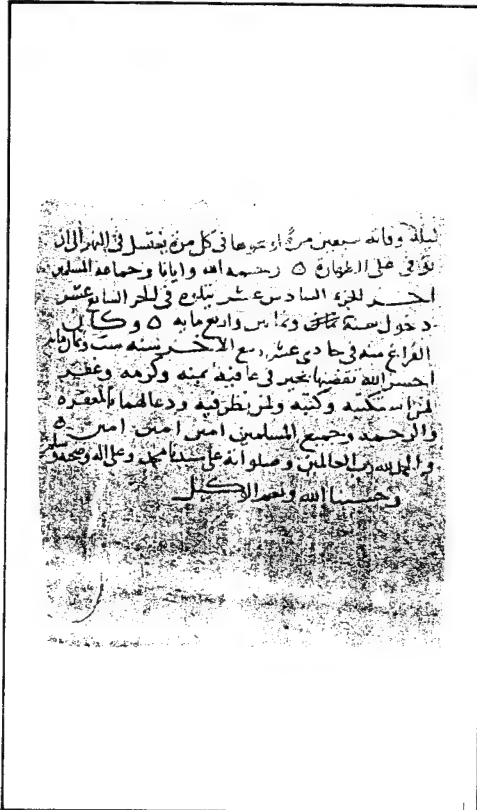 ليلة وفاته سبعين مرة او نحوها فى كل مرة يغتسل فى النهر الى ان
توفى على الطهارة ٥ رحمه الله وايانا وجماعة المسلمين
اخر الجزء السادس عشر يتلوه فى الجزء السابع عشر
دخول سنة وثمانين واربع مايه ٥ وكان
الفراغ منه فى حادى عشر ربيع الاخر سنه ست
احسن الله تقضيها بخير فى عافية بمنه وكرمه وغفر
لمن استكتبه وكتبه ولمن نظر فيه ودعا لهما بالمغفرة
والرحمة وجميع المسلمين امين امين امين ٥
والحمد لله رب العالمين وصلواته على سيدنا محمد وعلى اله وصحبه وسلم
وحسبنا الله ونعم الوكيل